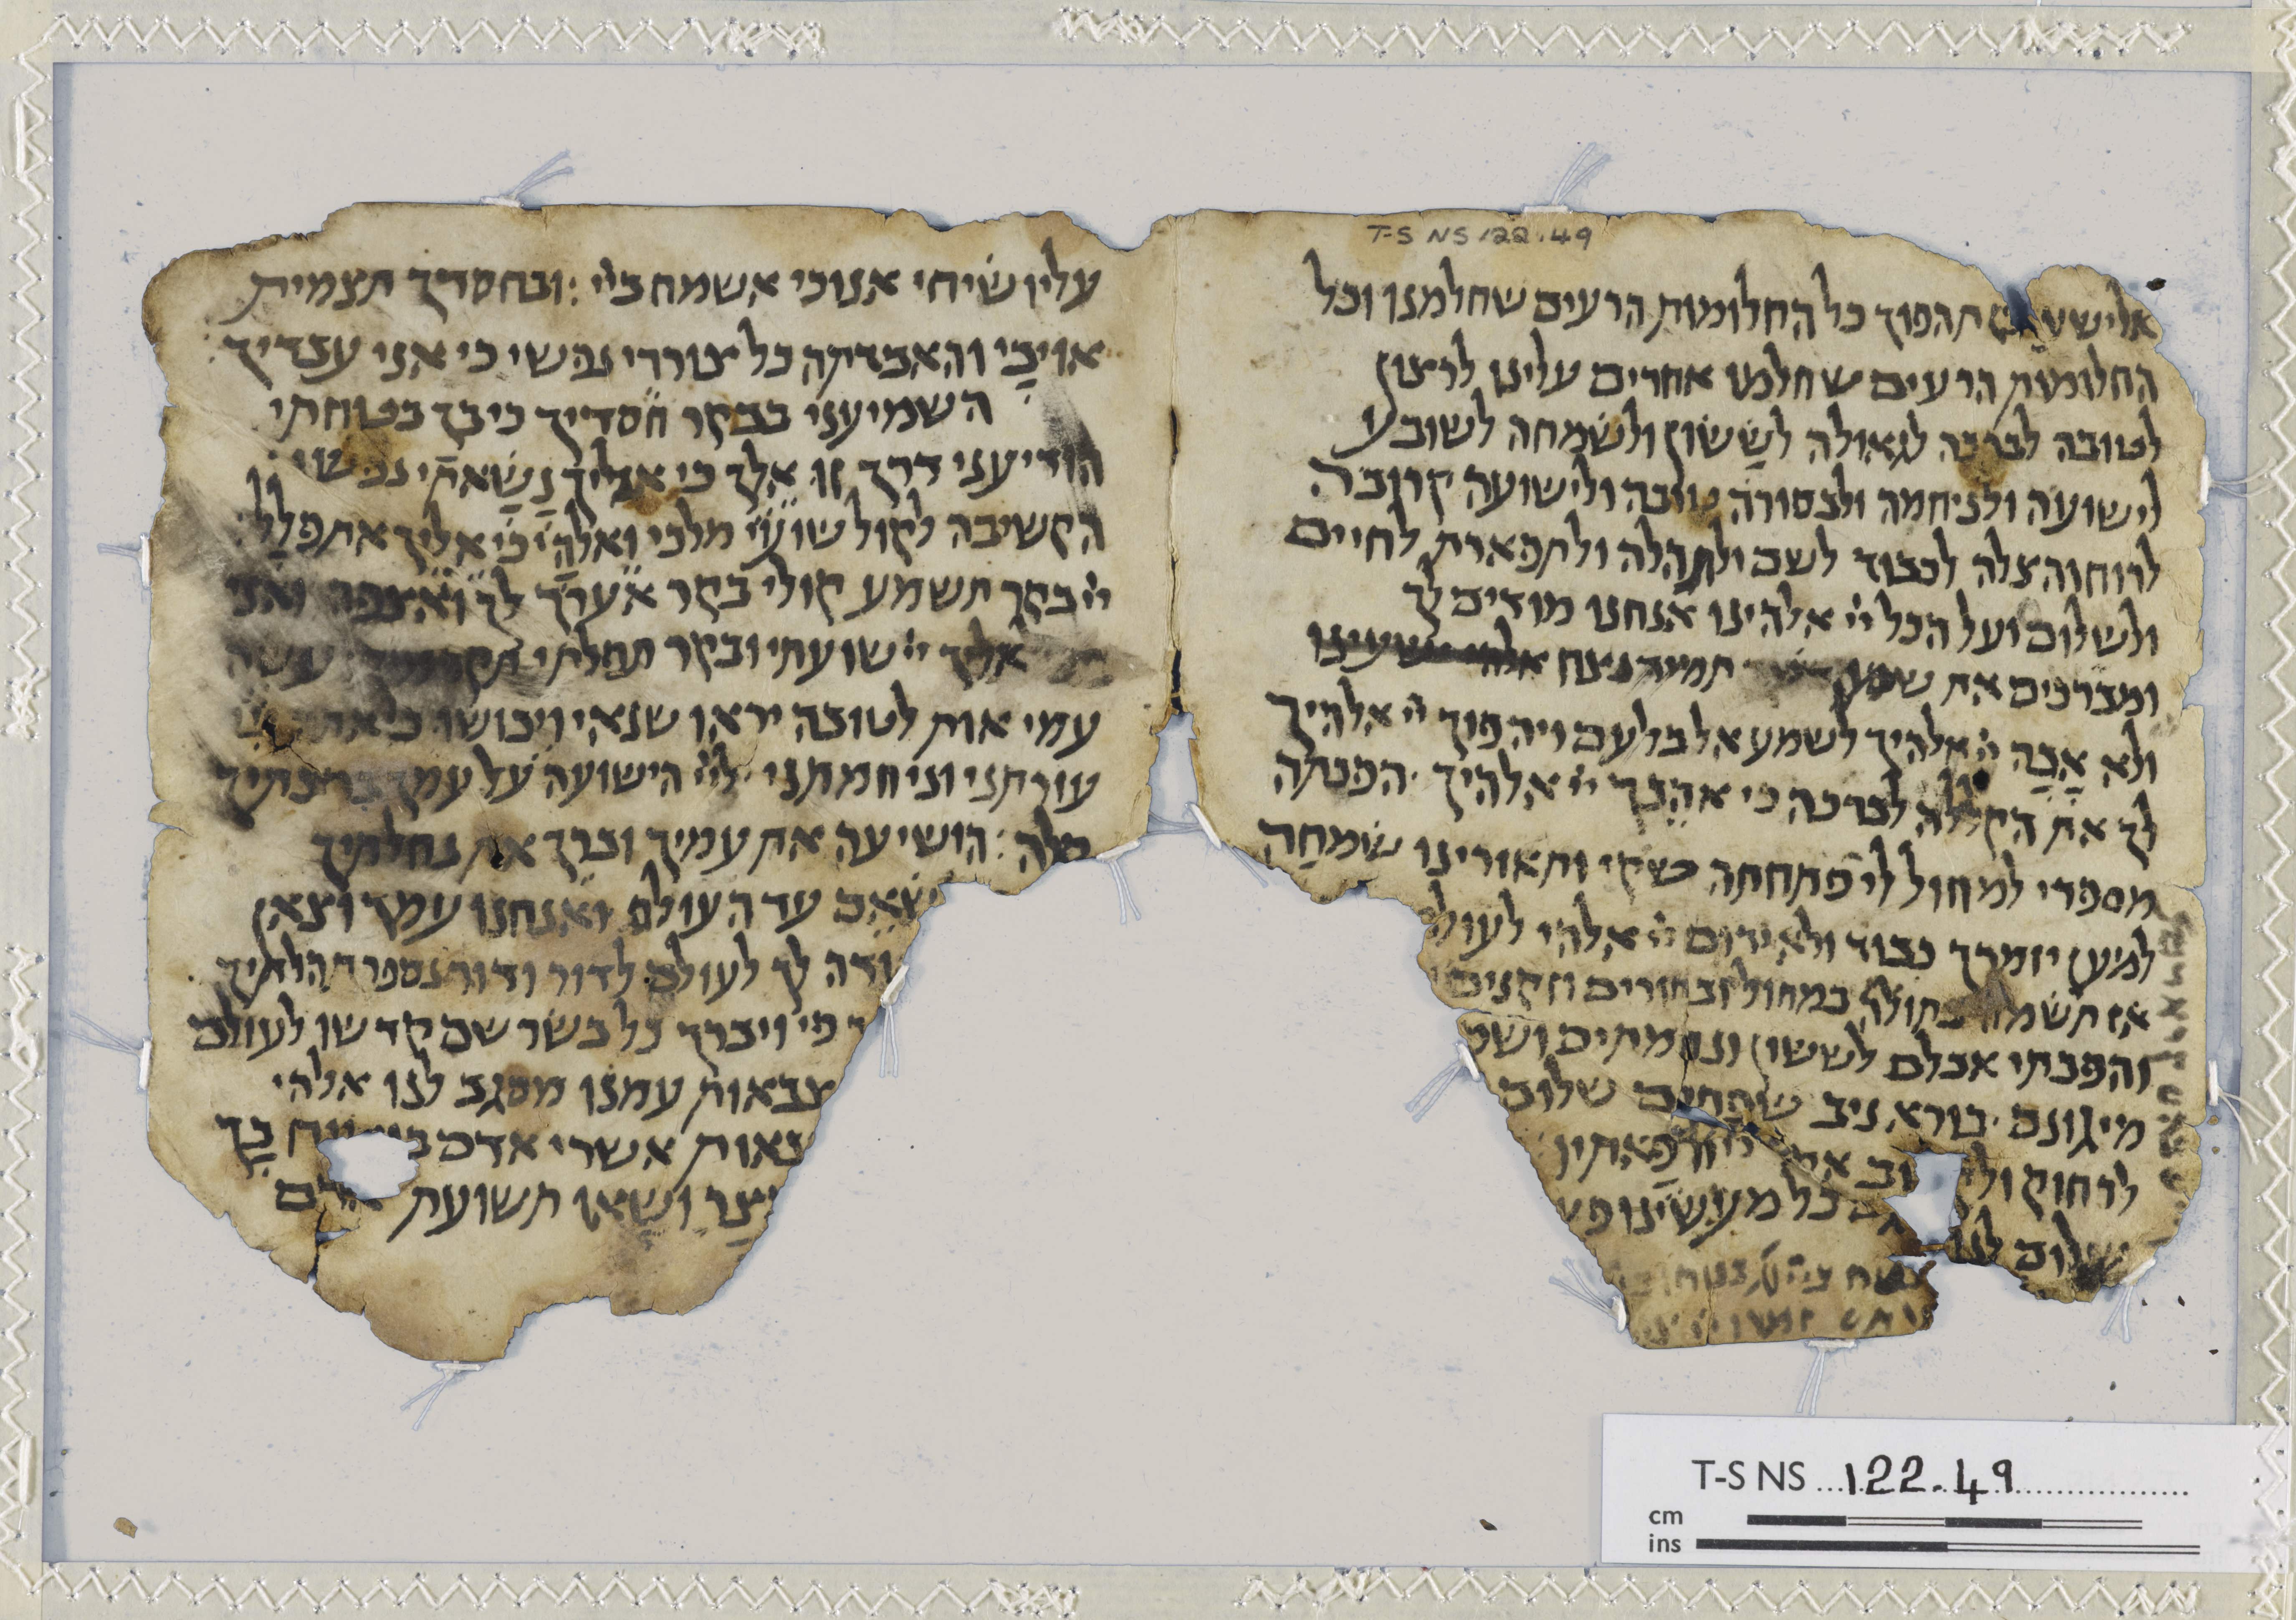 T-S NS 122.49
אלישע כן תהפוך כל החלומות הרעים שחלמנו וכל
החלומות הרעים שחלמו אחרים עלינו לרצון
לטובה לברכה לגאולה לששון ולשמחה לשובע
לישועה ולניחמה ולבסורה טובה ולישועה קרובה
לרוח והצלה לכבוד לשם ולתהלה ולתפארת לחיים
ולשלום ועל הכל יי אלהינו אנחנו מודים לך
ומברכים את תמיד נצח
ולא אבה יי אלהיך לשמע אל בלעם ויהפוך יי אלהיך
לך את הקללה לברכה כי אהבך יי אלהיך · הפכתה
מספדי למחול לי פתחתה שקי ותאזרינו שמחה
למען יזמרך כבוד ולא ידום יי אלהי לעולם
אז תשמח בתולה במחול ובחורים וזקנים
והפכתי אבלם לששון ונחמתים ושמ
מיגונם · בורא ניב שפתים שלום
לרחוק ול וב אמ יי ורפאתיו
שלום לנו גם כל מעשינו פע
עלין שיחי אנוכי אשמח ביי : ובחסדך תצמית
אויבי והאבדתה כל צוררי נפשי כי אני עבדיך :
השמיעני בבקר חסדיך כי בך בטוחתי
הודיעני דרך זו אלך כי אליך נשאתי נפשי
הקשיבה לקול שועי מלכי ואלהי כי אליך אתפלל :
יי בקר תשמע קולי בקר אערך לך ואצפה ואני
אליך יי שועתי ובקר תפלתי עשה
עמי אות לטובה יראו שנאי ויבושו כי אתה יי
עזרתני וניחמתני · ליי הישועה על עמך ברכתיך
סלה : הושיעה את עמיך וברך את נחלתיך
נשאם עד העולם ואנחנו עמך וצאן
ודה לך לעולם לדור ודור נספר תהלתיך ·
פי ויברך כל בשר שם קדשו לעולם
צבאות עמנו מסגב לנו אלהי
באות אשרי אדם בך
צר ושאו תשועת אדם
T-S NS 122.49
cm
ins